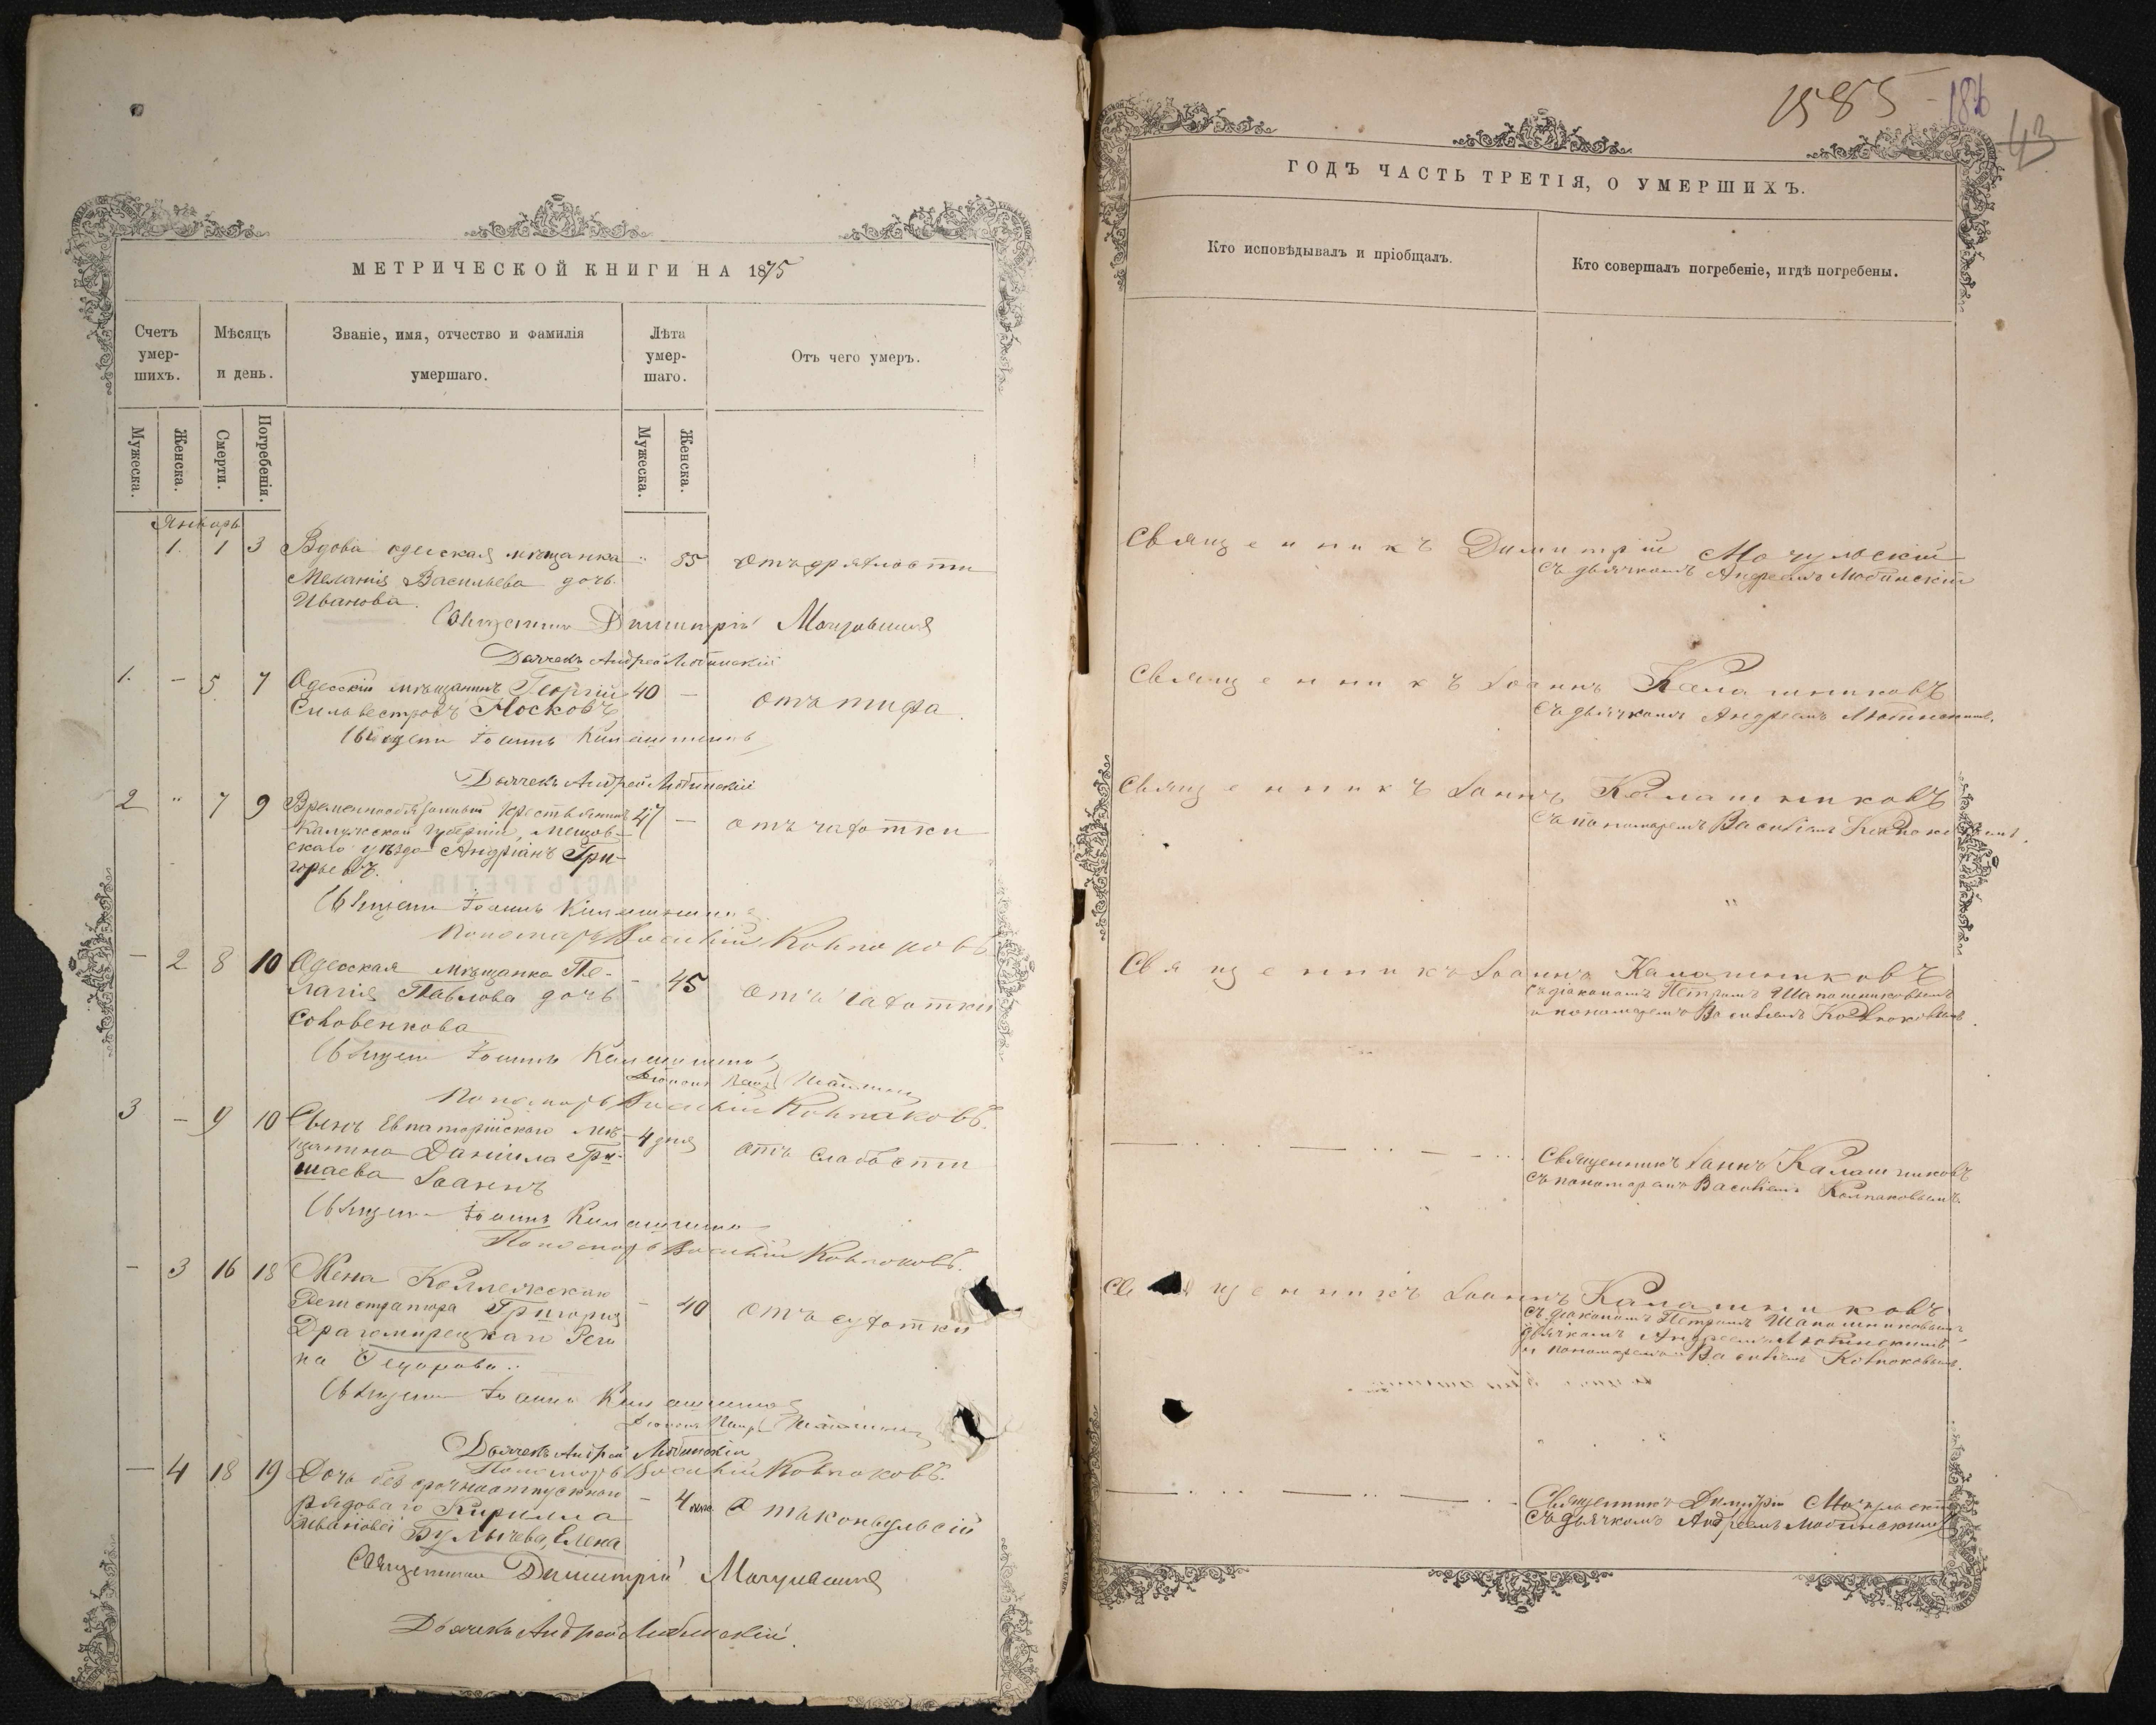 МЕТРИЧЕСКОЙ КНИГИ НА 1875
Счетъ умер-шихъ.
Мѣсяцъ и день.
Званіе, имя, отчество и фамилія умершаго.
Лѣта умер-шаго.
Отъ чего умеръ.
Мужеска.
Женска.
Смерти.
Погребенія.
Мужеска.
Женска.
Январь
1. 1 3 Вдова одесская мѣщанка 85 отъ дряхлости
Меланія Васильева дочь
Иванова.
Священникъ Димитрій Мочульскій
Дьячекъ Андрей Любинскій
1. — 5 7 Одесскій мѣщанинъ Георгій 40 — отъ тифа.
Сильвестровъ Носковъ
Священ Іоаннъ Калашников
Дьячекъ Андрей Любинскій
2 " 7 9 Временнообязанный крестьянинъ 47 — отъ чахотки
Калужской Губерніи, Мещов-
скаго уѣзда Андріанъ Гри-
горьевъ.
Священ Іоаннъ Калашников
Пономарь Василій Колпаковъ
— 2 8 10 Одесская мѣщанка Пе- — 45 отъ чахотки
лагія Павлова дочь
Соловенкова
Священ Іоаннъ Калашников
Пономарь Василій Колпаковъ.
3 — 9 10 Сынъ Евпаторійскаго мѣ- 4 дня отъ слабости
щанина Даніила Гри-
шаева Іоаннъ
Священ Іоаннъ Калашников
Пономарь Василій Колпаковъ.
— 3 16 18 Жена Коллежскаго — 40 отъ сухотки
Регистратора Григорія
Драгомирецкаго Реги
на Федорова.
Священ Іоаннъ Калашников
Дьячекъ Андрей Любинскій
Пономарь Василій Колпаковъ.
— 4 18 19 Дочь безсрочноотпускного — 4 отъ конвульсій
рядоваго Кирилла
Иванова Булычева, Елена
Священникъ Димитрій Мочульскій
Дьячекъ Андрей Любинскій.
1585 - 186
43
ГОДЪ ЧАСТЬ ТРЕТІЯ, О УМЕРШИХЪ.
Кто исповѣдывалъ и пріобщалъ.
Кто совершалъ погребеніе, и гдѣ погребены.
Священникъ Димитрій Мочульскій
съ дьячкомъ Андреемъ Любинскій
Священникъ Іоаннъ Калашниковъ
съ дьячкомъ Андреемъ Любинскимъ.
Священникъ Іоаннъ Калашниковъ
съ пономаремъ Василіемъ Колпаковымъ.
Священникъ Іоаннъ Калашниковъ
съ діакономъ Петромъ Шапошниковымъ
и пономаремъ Василіемъ Колпаковымъ.
Священникъ Іоаннъ Калашниковъ
съ пономаремъ Василіемъ Колпаковымъ.
Священникъ Іоаннъ Калашниковъ
съ діакономъ Петромъ Шапошниковымъ
дьячкомъ Андреемъ Любинскимъ
и пономаремъ Василіемъ Колпаковымъ.
Священникъ Димитрій Мочульскій
съ дьячкомъ Андреемъ Любинскимъ